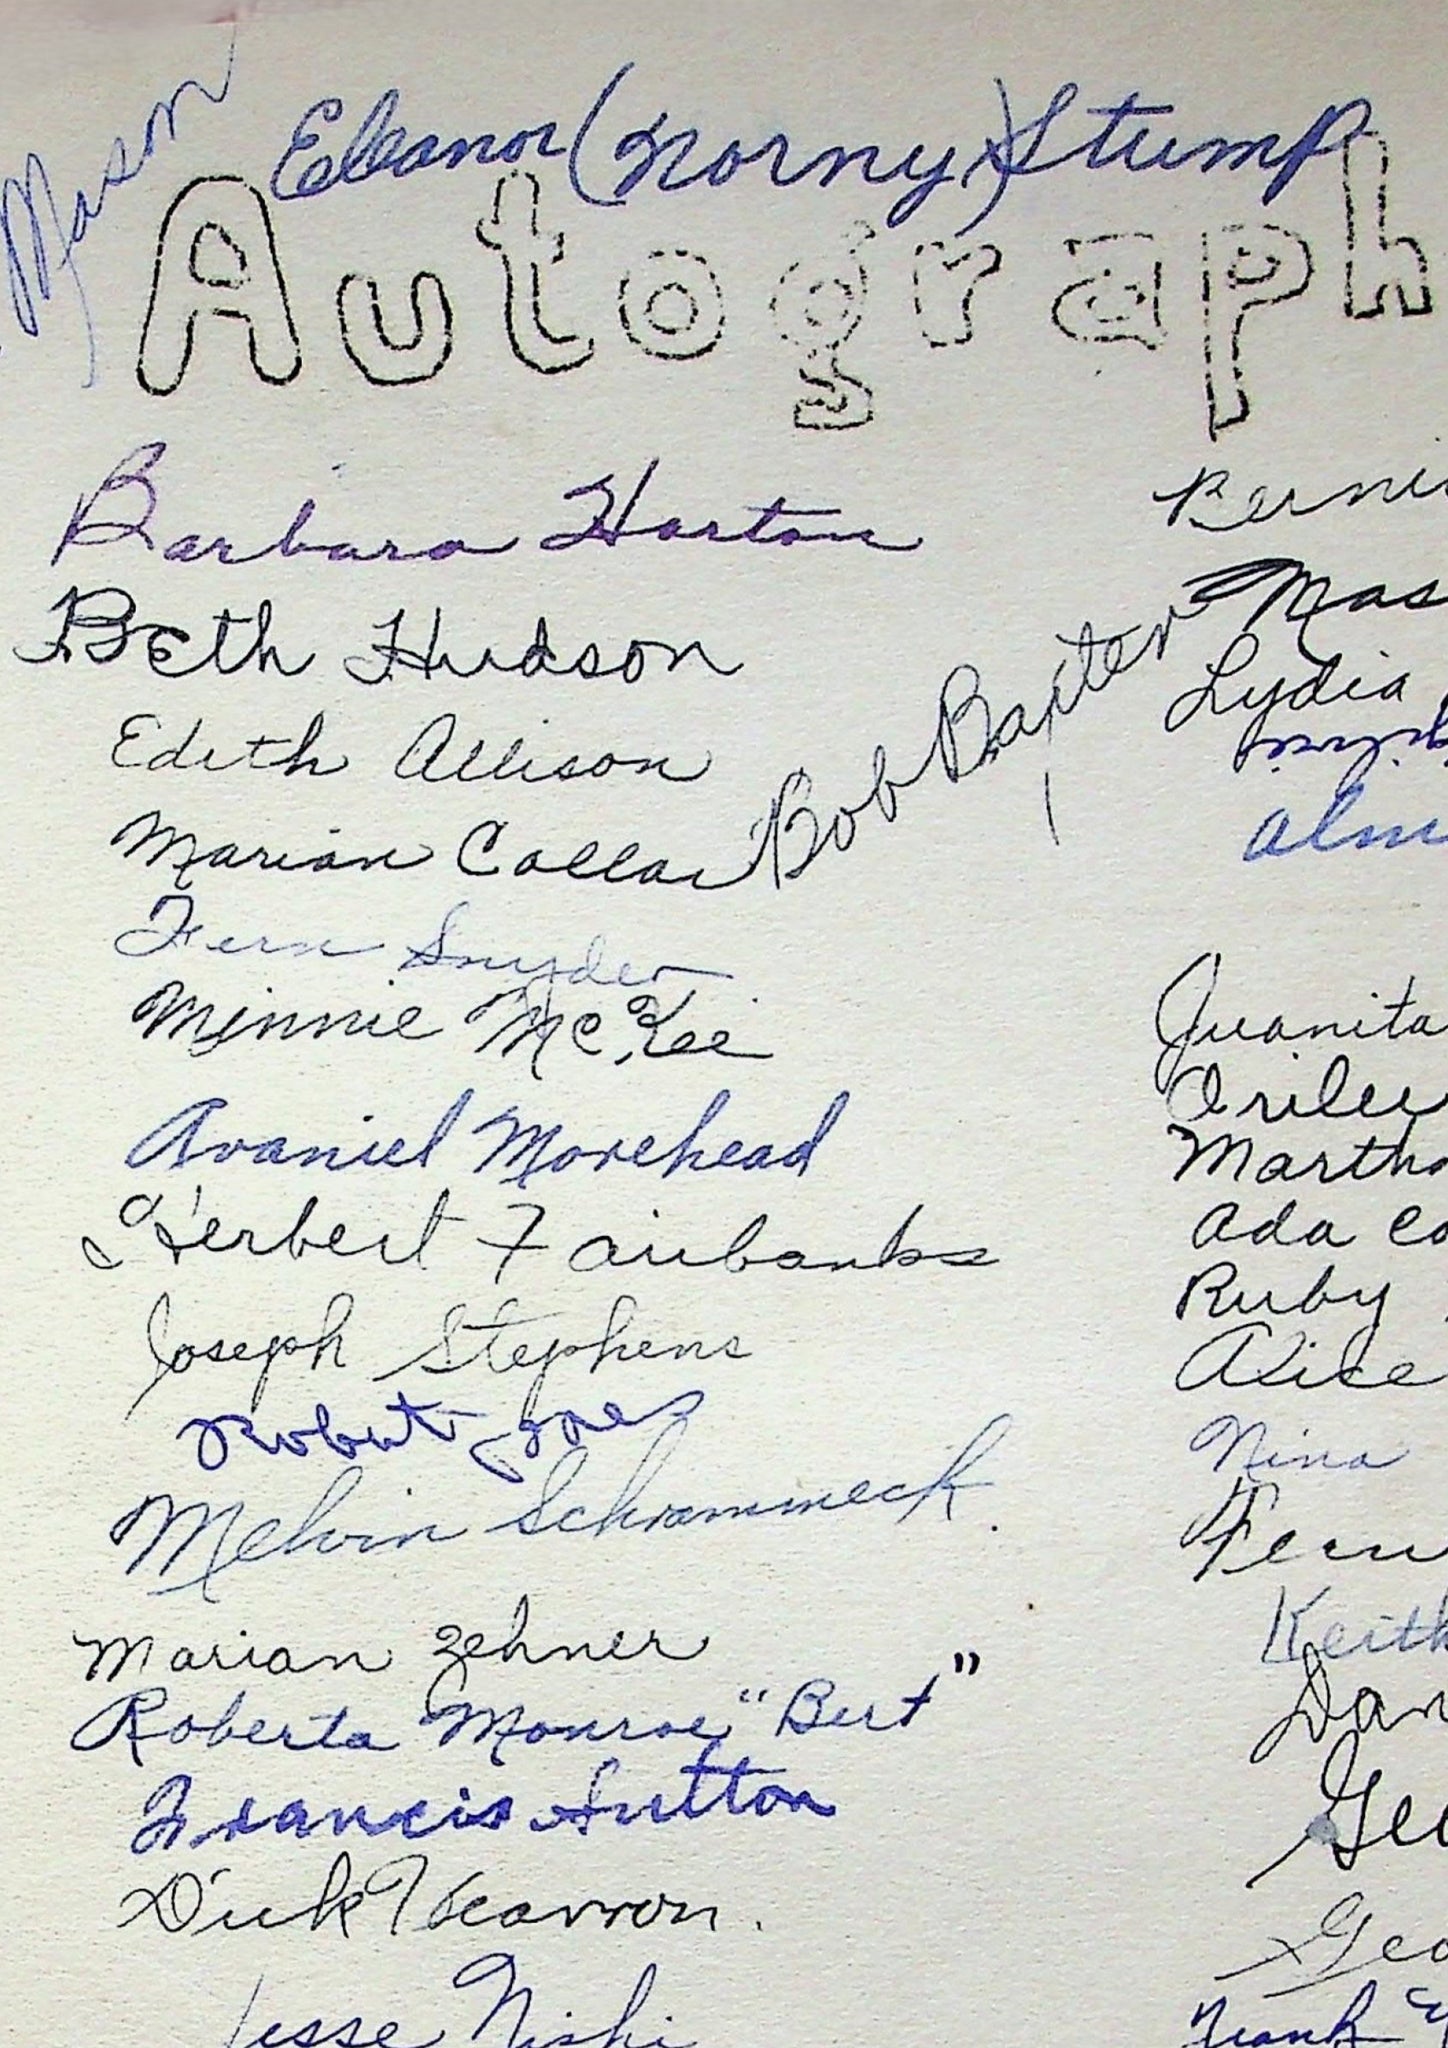 Mason
Eleanor (Norny) Stump
Autograph
Barbara Horton
Beth Hudson
Edith Allison
Marian Collar
Bob Baxter
Fern Snyder
Minnie McKee
Avaniel Morehead
Herbert Fairbanks
Joseph Stephens
Robert
Melvin Schrammeck
Marian Zehner
Roberta Monroe "Bert"
Francis Sutton
Dick
Jesse Nishi
Berni
Mas
Lydia
Alm
Juanita
Martha
Ada Co
Ruby
Alice
Nina
Fern
Keith
Dan
Geo
Frank